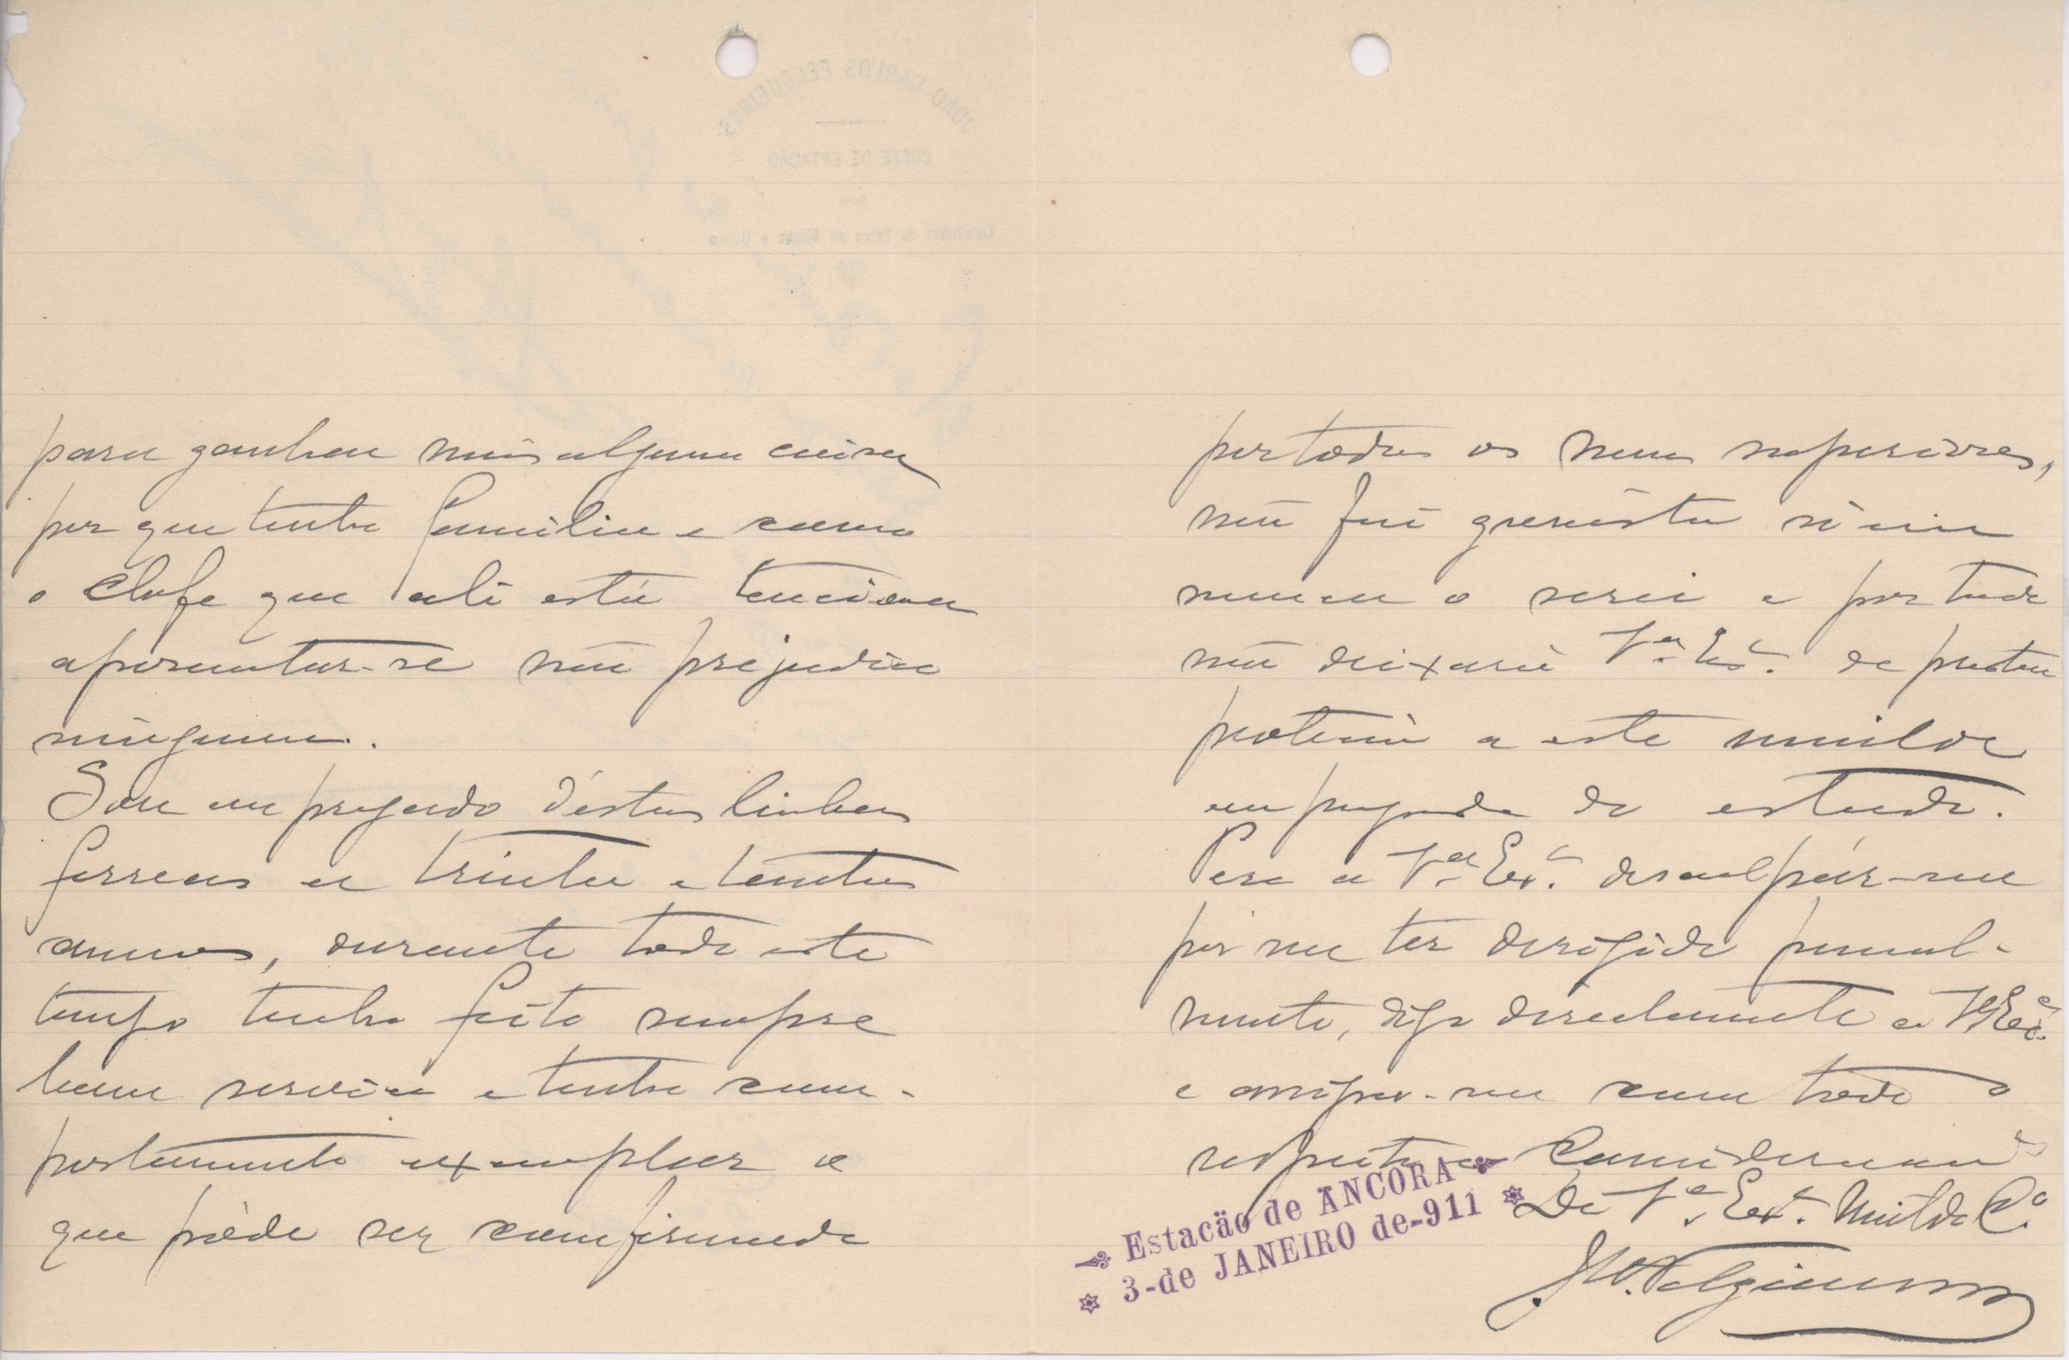 para ganhar mais alguma coisa
por que tenho familia e como
o chefe que ali está tenciona
aposentar-se não prejudica
ninguem.
Sou empregado d'estas linhas
ferreas a trinta e tantos
annos, durante todo este
tempo tenho feito sempre
bom serviço e tenho com-
portamento exemplar o
que póde ser comfirmado
por todos os meus superiores,
não fui grevista nem
nunca o serei e por tudo
não deixará V.ª Ex.ª de prestar
proteção a este umilde
empregado do estado.
Peço a V.ª Ex.ª desculpár-me
por me ter dirigido pessoal-
mente, digo directamente a V.ª Ex.ª
e assigno-me com todo o
respeito e consideração
De V.ª Ex.ª Muito C.º
J. C. Felgueiras
Estacão de ANCORA
3-de JANEIRO de-911
JOÃO CARLOS FELGUEIRAS
CHEFE DE ESTAÇÃO
Caminhos de Ferro do Minho e Douro